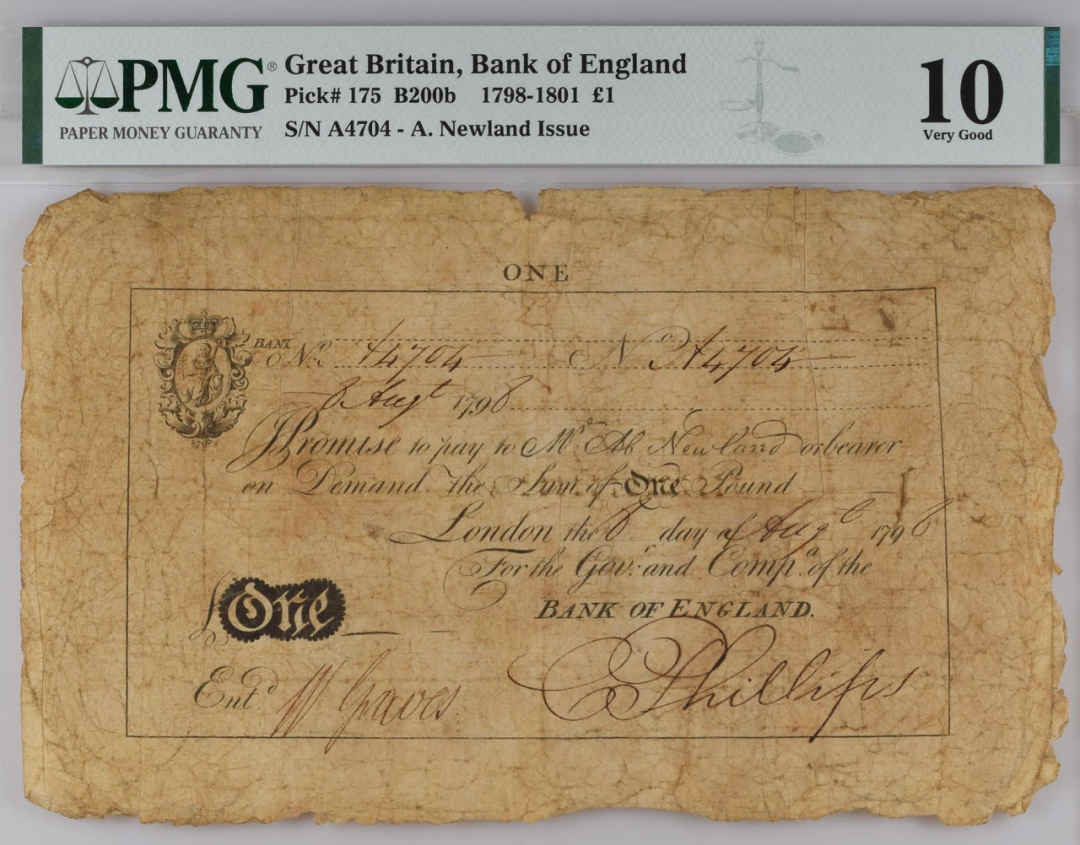 PMG®
PAPER MONEY GUARANTY
Great Britain, Bank of England
Pick# 175 B200b 1798-1801 £1
S/N A4704 - A. Newland Issue
10
Very Good
ONE
BANK No. A4704 No. A4704
8 Augt 1798
I Promise to pay to Mr. Ab Newland or bearer
on Demand the Sum of One Pound
London the 8 day of Augt 1798
For the Govr. and Compa. of the
BANK OF ENGLAND.
£One
Entd W Graves C Phillips